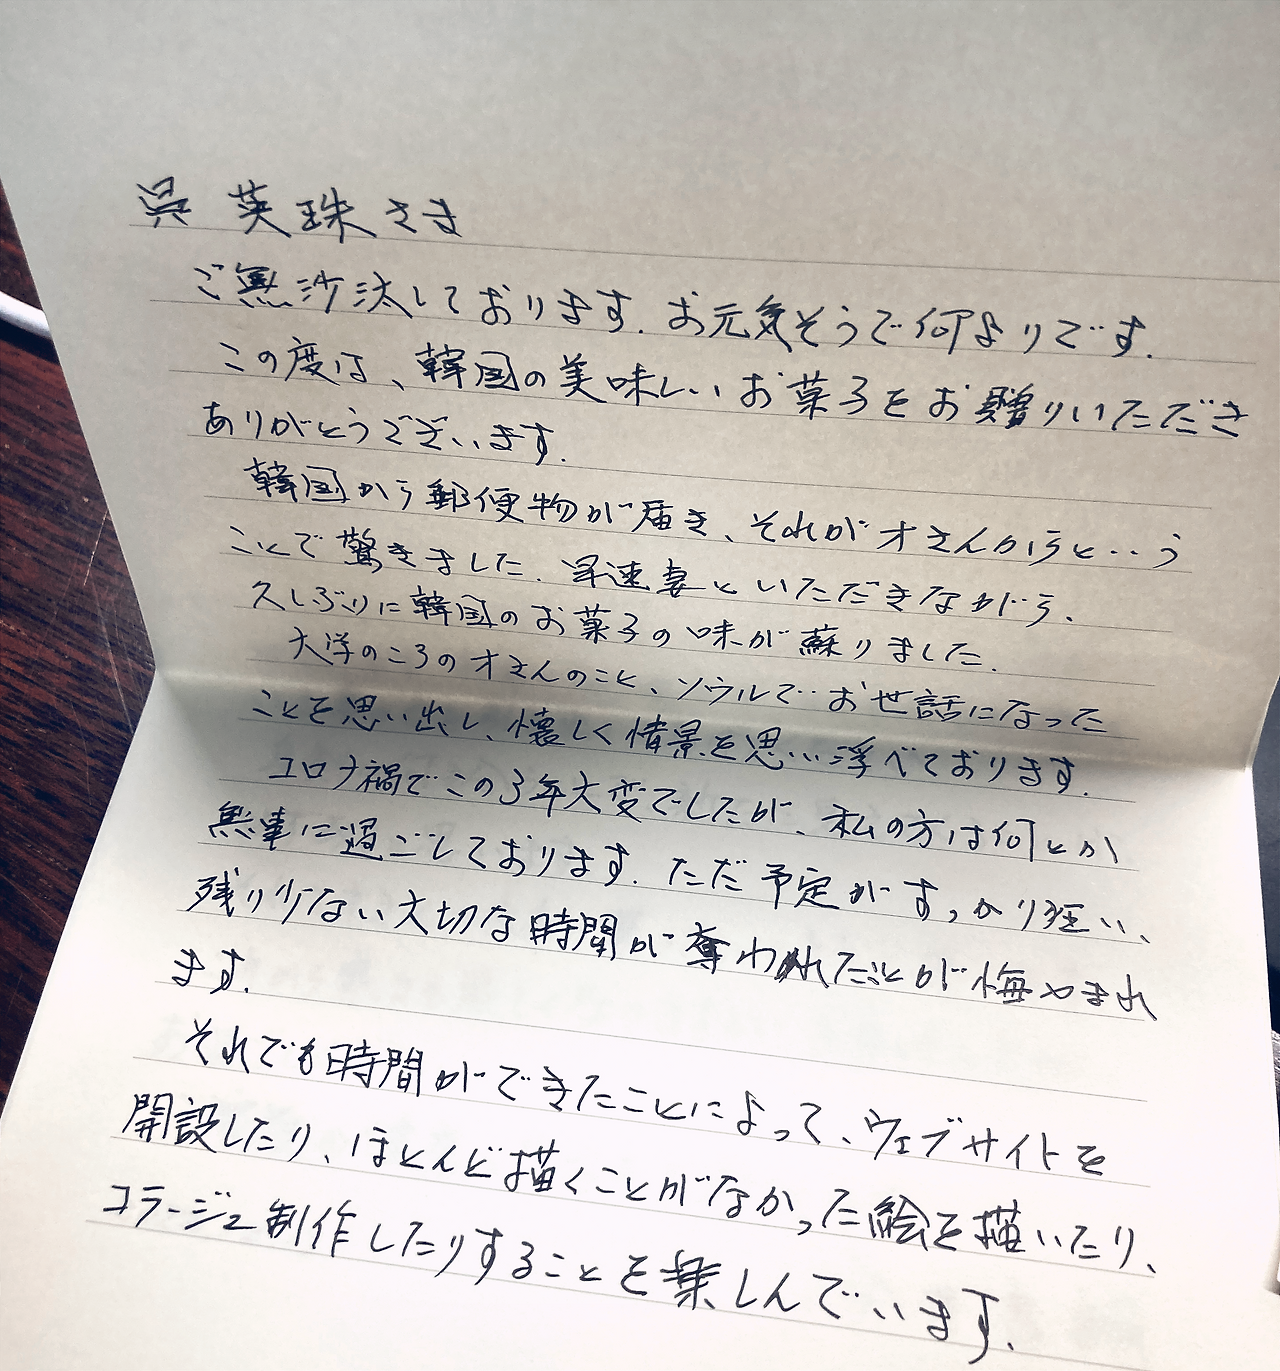 呉 英珠さま
ご無沙汰しております. お元気そうで何よりです.
この度は、韓国の美味しいお菓子をお贈りいただき
ありがとうございます.
韓国から郵便物が届き、それがオさんからという
ことで驚きました. 早速妻といただきながら、
久しぶりに韓国のお菓子の味が蘇りました.
大学のころのオさんのこと、ソウルでお世話になった
ことを思い出し、懐しく情景を思い浮べております.
コロナ禍でこの3年大変でしたが、私の方は何とか
無事に過ごしております. ただ予定がすっかり狂い、
残り少ない大切な時間が奪われたことが悔やまれ
ます.
それでも時間ができたことによって、ウェブサイトを
開設したり、ほとんど描くことがなかった絵を描いたり、
コラージュ制作したりすることを楽しんでいます.